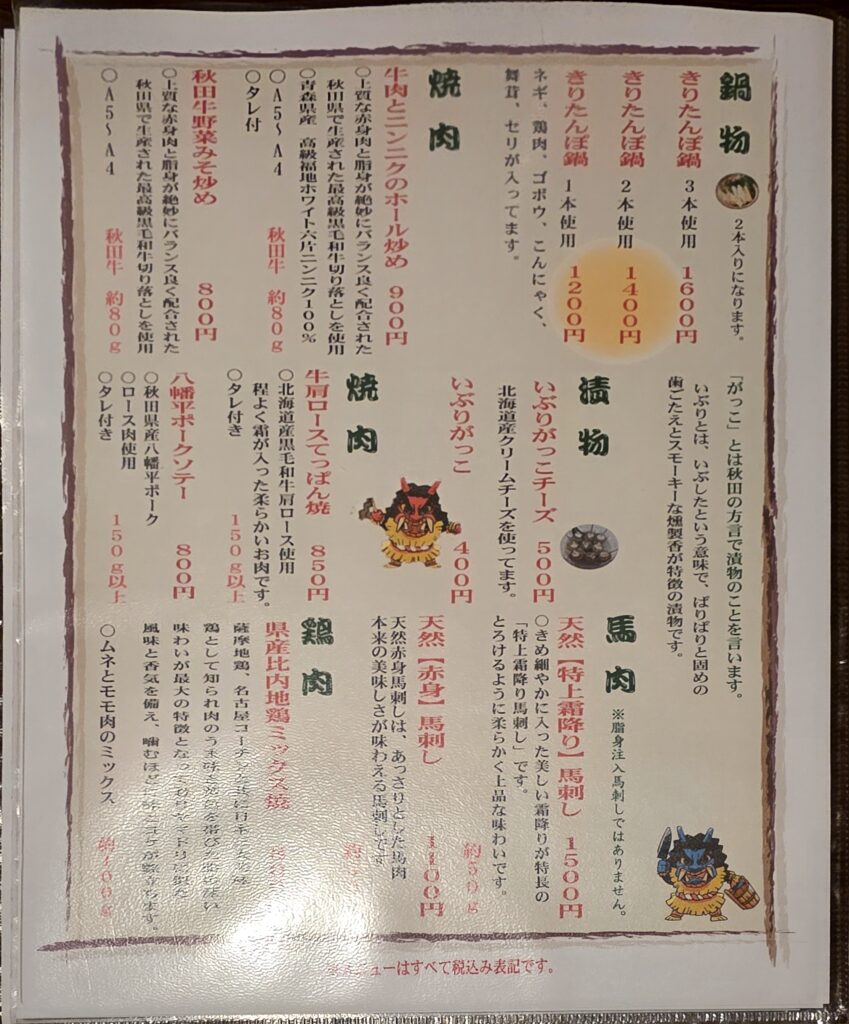 鍋物
2本入りになります。
きりたんぽ鍋 3本使用 1600円
きりたんぽ鍋 2本使用 1400円
きりたんぽ鍋 1本使用 1200円
ネギ、鶏肉、ゴボウ、こんにゃく、
舞茸、セリが入ってます。
焼肉
牛肉とニンニクのホール炒め 900円
○上質な赤身肉と脂身が絶妙にバランス良く配合された
秋田県で生産された最高級黒毛和牛切り落としを使用
○青森県産 高級福地ホワイト六片ニンニク100%
○A5~A4 秋田牛 約80g
○タレ付
秋田牛野菜みそ炒め 800円
○上質な赤身肉と脂身が絶妙にバランス良く配合された
秋田県で生産された最高級黒毛和牛切り落としを使用
○A5~A4 秋田牛 約80g
「がっこ」とは秋田の方言で漬物のことを言います。
いぶりとは、いぶしたという意味で、ぱりぱりと固めの
歯ごたえとスモーキーな燻製香が特徴の漬物です。
漬物
いぶりがっこチーズ 500円
北海道産クリームチーズを使ってます。
いぶりがっこ 400円
焼肉
牛肩ロースてっぱん焼 850円
○北海道産黒毛和牛肩ロース使用
程よく霜が入った柔らかいお肉です。
○タレ付き 150g以上
八幡平ポークソテー 800円
○秋田県産八幡平ポーク
○ロース肉使用
○タレ付き 150g以上
馬肉
※脂身注入馬刺しではありません。
天然【特上霜降り】馬刺し 1500円
○きめ細やかに入った美しい霜降りが特長の
「特上霜降り馬刺し」です。
とろけるように柔らかく上品な味わいです。
約50g
天然【赤身】馬刺し 1100円
天然赤身馬刺しは、あっさりとした馬肉
本来の美味しさが味わえる馬刺しです
約
鶏肉
県産比内地鶏ミックス焼
薩摩地鶏、名古屋コーチンと共に日本三大美味
鶏として知られ肉のうま味と
味わいが最大の特徴となっており、ヤマドリに似た
風味と香気を備え、噛むほどに味とコクが際立ちます。
○ムネとモモ肉のミックス 約100g
メニューはすべて税込み表記です。